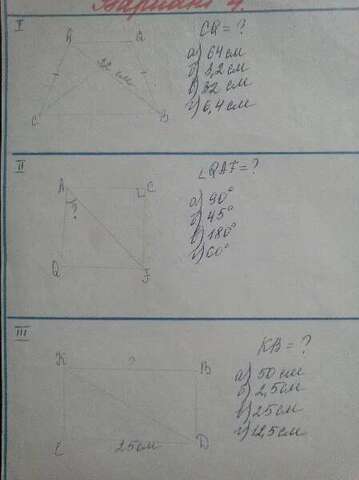 Вариант 4.
I
CQ = ?
а) 64 см
б) 3,2 см
в) 32 см
г) 6,4 см
32 см
C
II
∠QAF = ?
A
C
?
а) 90°
б) 45°
в) 180°
г) 60°
Q
F
III
KB = ?
K
?
B
а) 50 см
б) 2,5 см
в) 25 см
г) 12,5 см
25 см
D